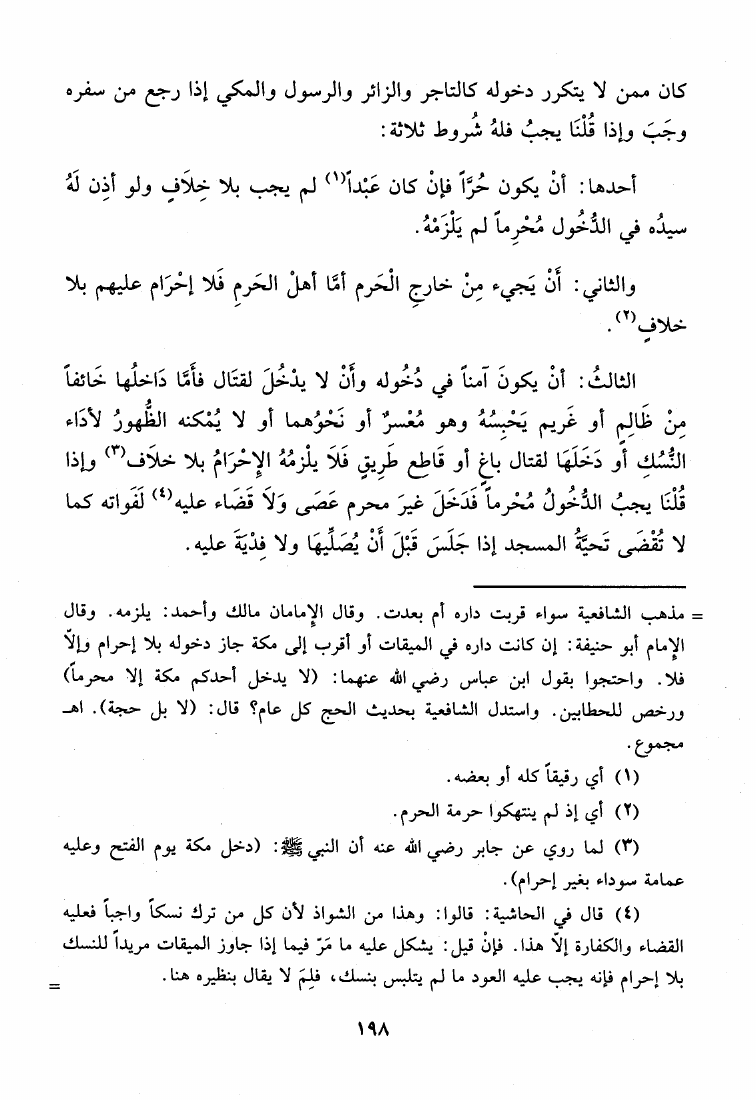 كان ممن لا يتكرر دخوله كالتاجر والزائر والرسول والمكي إذا رجع من سفره
وجَبَ وإذا قُلْنَا يجبُ فلهُ شُروط ثلاثة:
أحدها: أنْ يكون حُرَّاً فإنْ كان عَبْداً(١) لم يجب بلا خِلَافٍ ولو أذِن لَهُ
سيدُه في الدُّخُول مُحْرِماً لم يَلْزَمْهُ.
والثاني: أَنْ يَجيء مِنْ خارجِ الْحَرم أمَّا أهلْ الحَرمِ فَلَا إحْرَام عليهم بلا
خلافٍ(٢).
الثالثُ: أنْ يكونَ آمناً في دُخُوله وأنْ لا يدْخُلَ لقتَال فأمَّا دَاخلُها خَائفاً
مِنْ ظَالِمٍ أو غَريم يَحْبِسُهُ وهو مُعْسرٌ أو نَحْوُهما أو لا يُمْكنه الظُّهورُ لأدَاء
النُّسُكِ أو دَخَلَهَا لقتال باغٍ أو قَاطِع طَرِيقٍ فَلَا يلْزمُهُ الإحْرَامُ بلا خلاف(٣) وإذا
قُلْنَا يجبُ الدُّخُولُ مُحْرماً فَدَخَلَ غيرَ محرم عَصَى وَلَا قَضَاء عليه(٤) لَفَواته كما
لا تُقْضَى تَحيَّةُ المسجد إذا جَلَسَ قَبْلَ أَنْ يُصَلِّيهَا ولا فِدْيَةَ عليه.
= مذهب الشافعية سواء قربت داره أم بعدت. وقال الإمامان مالك وأحمد: يلزمه. وقال
الإمام أبو حنيفة: إن كانت داره في الميقات أو أقرب إلى مكة جاز دخوله بلا إحرام وإلّا
فلا. واحتجوا بقول ابن عباس رضي الله عنهما: (لا يدخل أحدكم مكة إلا محرماً)
ورخص للحطابين. واستدل الشافعية بحديث الحج كل عام؟ قال: (لا بل حجة). اهـ
مجموع.
(١) أي رقيقاً كله أو بعضه.
(٢) أي إذ لم ينتهكوا حرمة الحرم.
(٣) لما روي عن جابر رضي الله عنه أن النبي ﷺ: (دخل مكة يوم الفتح وعليه
عمامة سوداء بغير إحرام).
(٤) قال في الحاشية: قالوا: وهذا من الشواذ لأن كل من ترك نسكاً واجباً فعليه
القضاء والكفارة إلّا هذا. فإنْ قيل: يشكل عليه ما مَرّ فيما إذا جاوز الميقات مريداً للنسك
بلا إحرام فإنه يجب عليه العود ما لم يتلبس بنسك، فلِمَ لا يقال بنظيره هنا. =
١٩٨